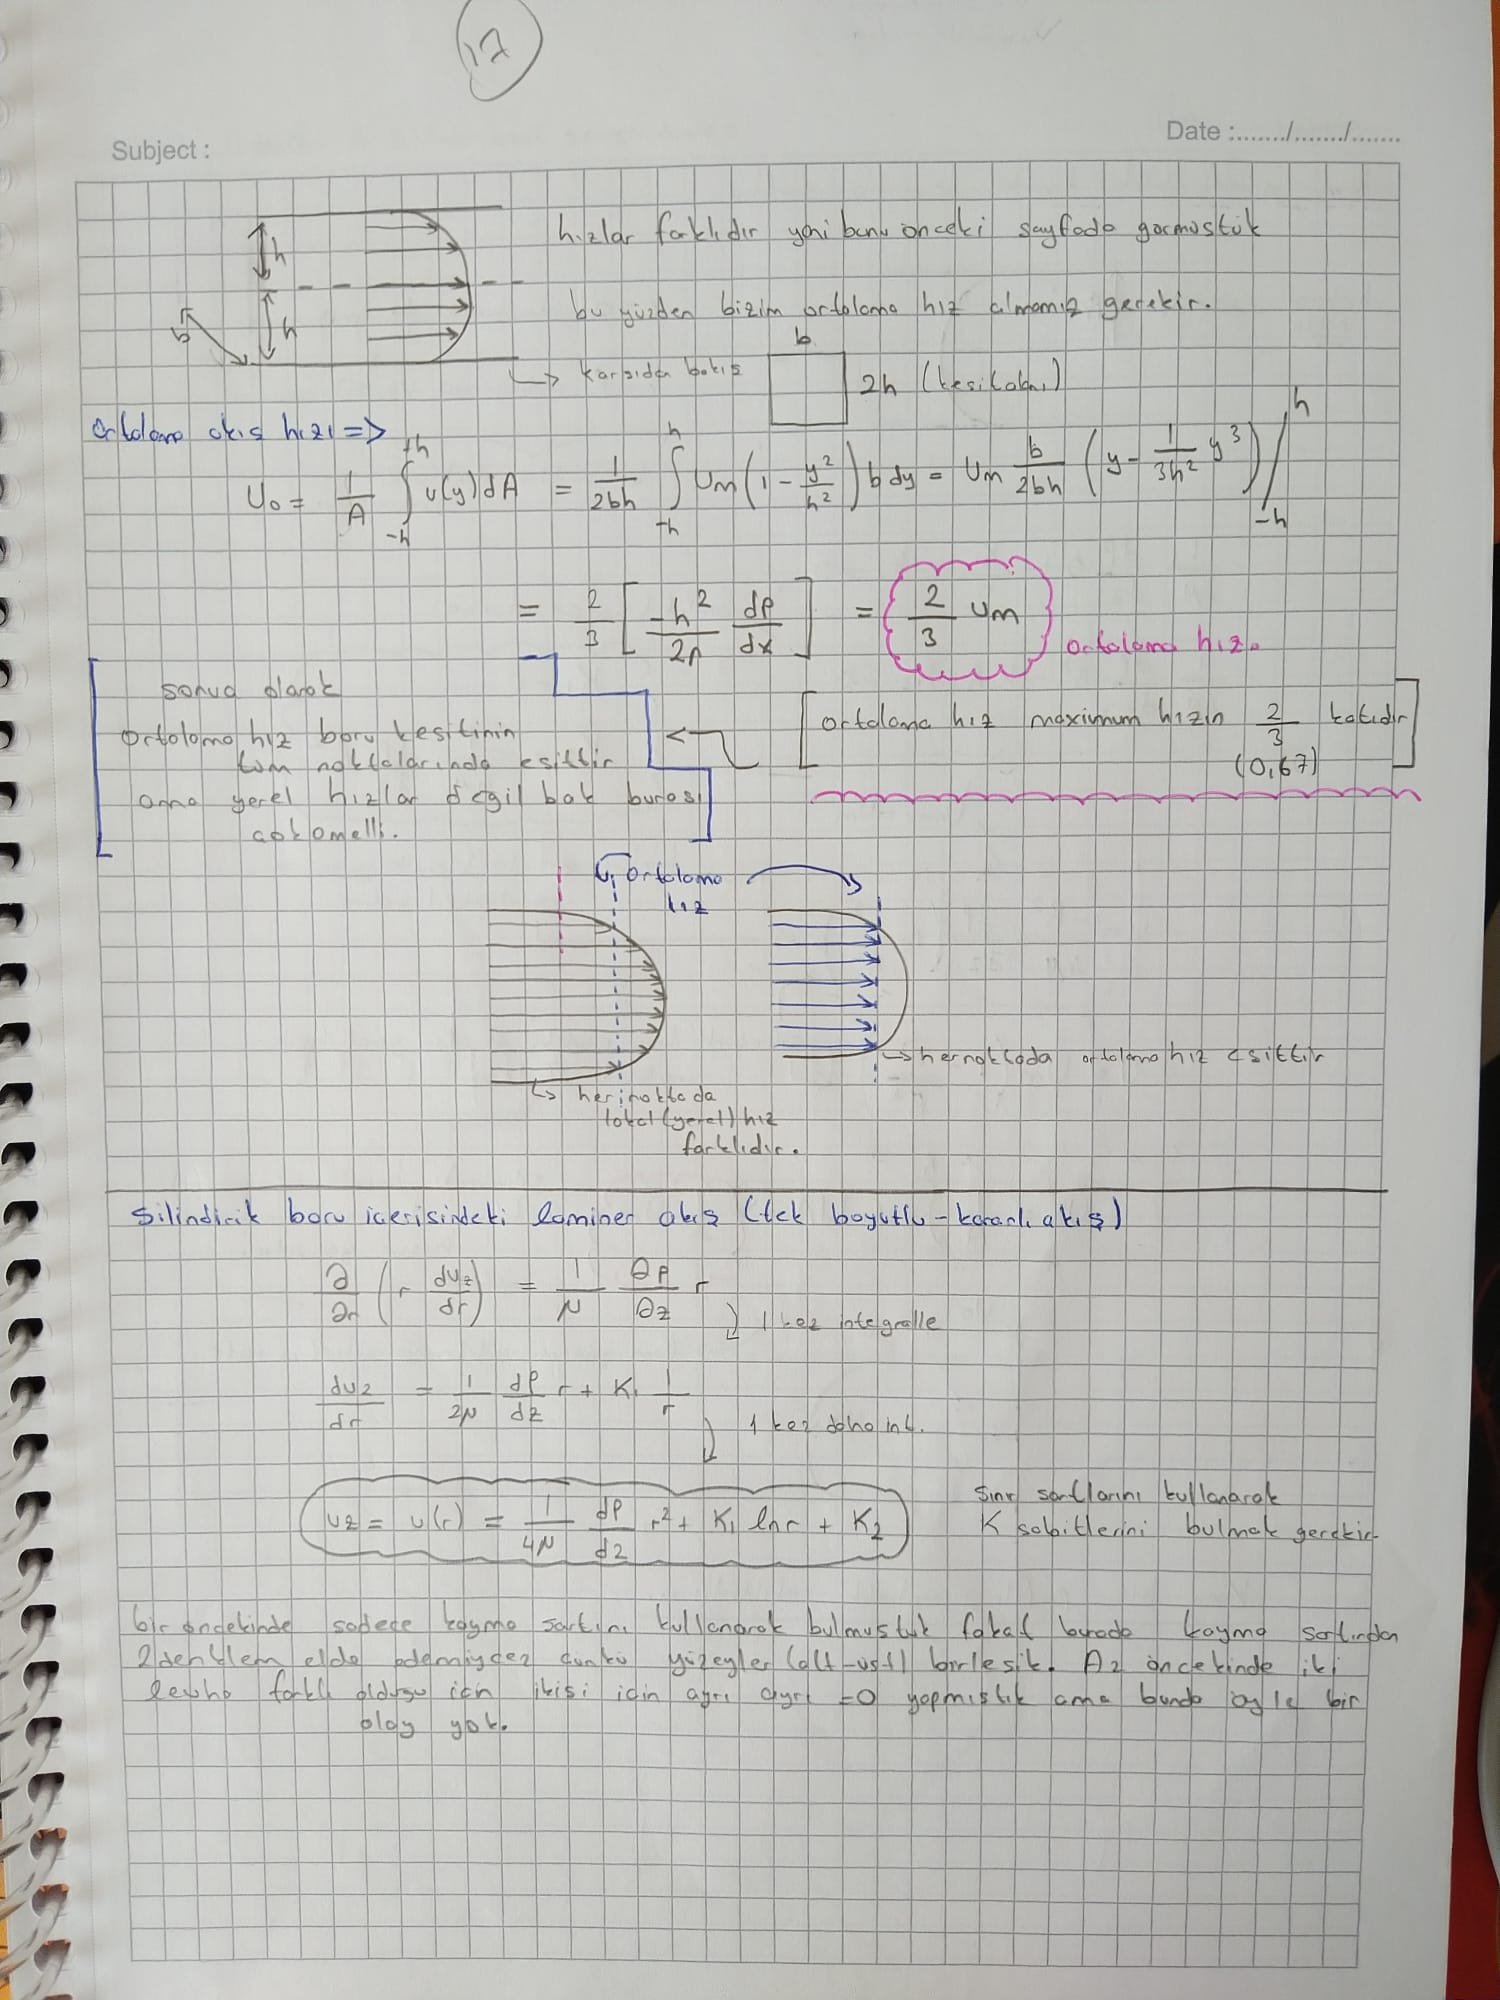 17
Subject :
Date :......./......./.......
h
h
b
hızlar farklıdır yani bunu önceki sayfada görmüştük
bu yüzden bizim ortalama hız almamız gerekir.
→ karşıdan bakış
b
2h (kesit alanı)
Ortalama akış hızı =>
U₀ = 1/A ∫_{-h}^{+h} u(y) dA = 1/2bh ∫_{-h}^{h} Um (1 - y²/h²) b dy = Um b/2bh (y - 1/3h² y³) /_{-h}^{h}
= 2/3 [-h²/2μ dp/dx] = 2/3 Um
Ortalama hız.
sonuç olarak
Ortalama hız boru kesitinin
tüm noktalarında eşittir
ama yerel hızlar değil bak burası
çokomelli.
[ortalama hız maximum hızın 2/3 katıdır]
(0,67)
ortalama
hız
→ her noktada
lokal (yerel) hız
farklıdır.
→ her noktada ortalama hız eşittir
Silindirik boru içerisindeki laminer akış (tek boyutlu - kararlı akış)
∂/∂r (r duz/dr) = 1/μ ∂p/∂z r
1 kez integralle
duz/dr = 1/2μ dp/dz r + K₁ 1/r
1 kez daha int.
uz = u(r) = 1/4μ dp/dz r² + K₁ lnr + K₂
Sınır şartlarını kullanarak
K sabitlerini bulmak gerekir
bir öncekinde sadece kayma şartını kullanarak bulmuştuk fakat burada kayma şartından
2 denklem elde edemiycez çünkü yüzeyler (alt-üst) birleşik. Az öncekinde iki
levha farklı olduğu için ikisi için ayrı ayrı =0 yapmıştık ama bunda öyle bir
olay yok.